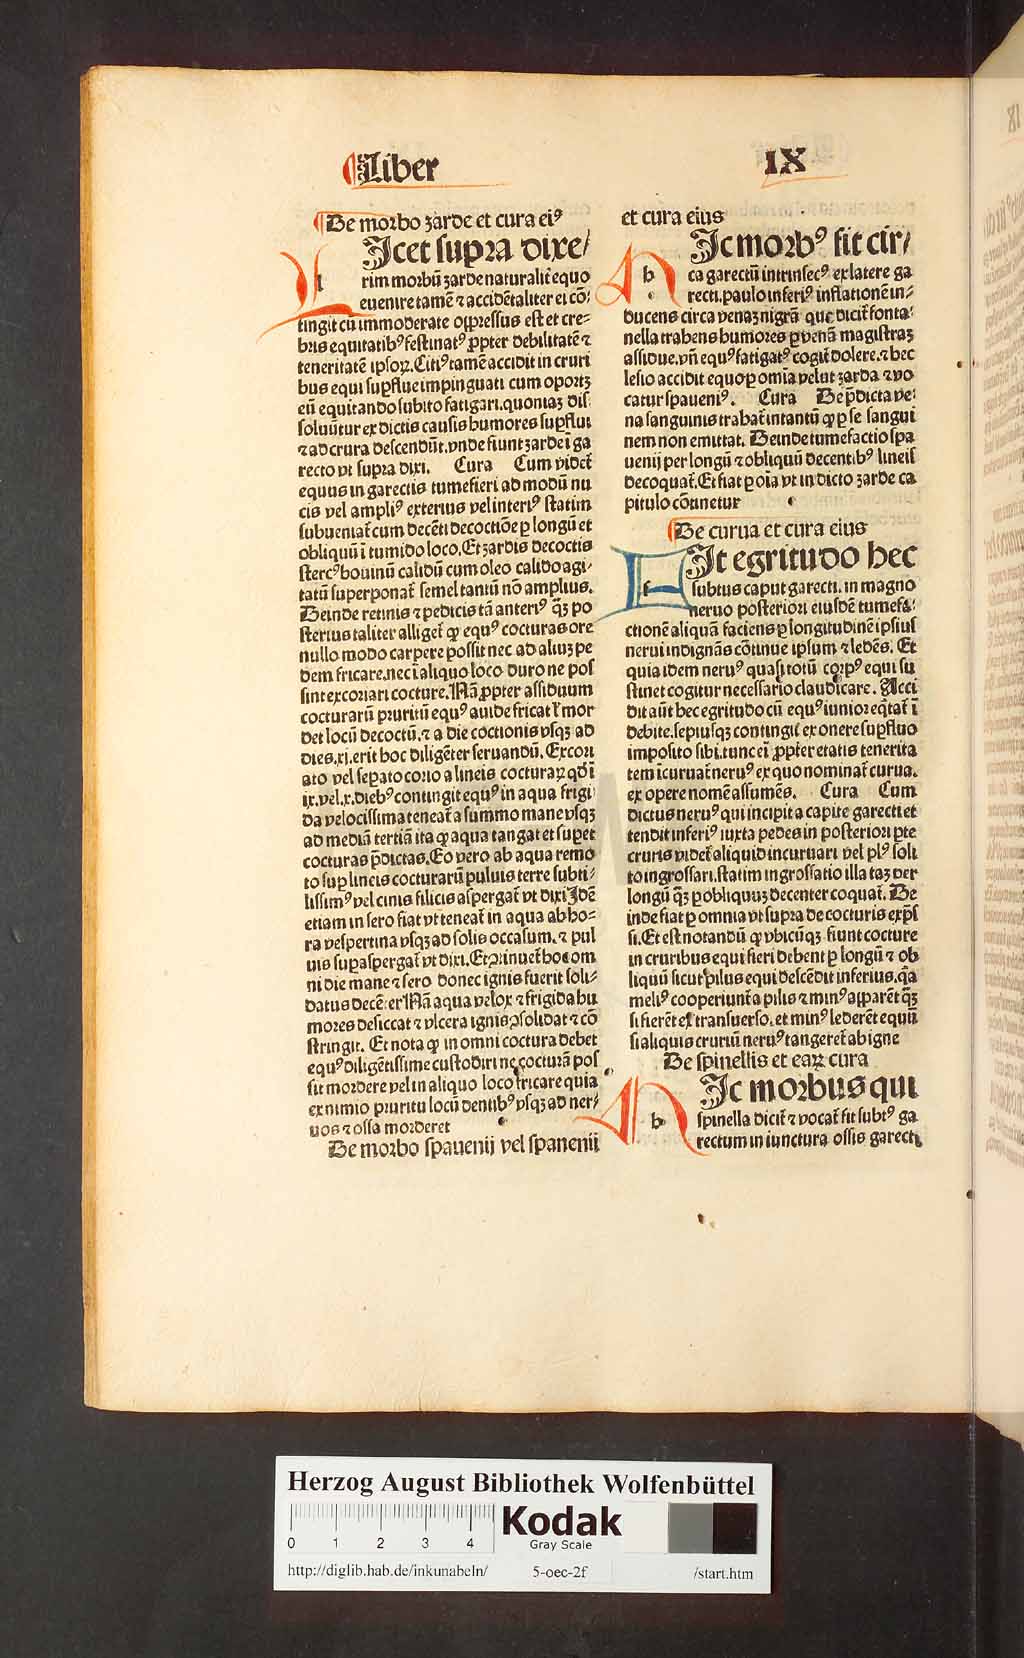 Liber
IX
De morbo zarde et cura ei⁹
LIcet supra dixe/
rim morbū zarde naturalit̄ equo
euenire tamē ⁊ accidētaliter ei cō/
tingit cū immoderate oppressus est et cre=
bris equitatib⁹ festinat⁹ ꝓpter debilitatē ⁊
teneritatē ipsoꝝ. Citi⁹ tamē accidit in cruri
bus equi suꝑflue impinguati cum oportꝫ
eū equitando subito fatigari. quoniaꝫ dis
soluūtur ex dictis causis humores suꝑflui
⁊ ad crura descendūt. vnde fiunt zarde ī ga
recto vt supra dixi. Cura Cum videt̄
equus in garectis tumefieri ad modū nu
cis vel ampli⁹ exterius vel interi⁹ statim
subueniat̄ cum decēti decoctiōe ꝑ longū et
obliquū ī tumido loco. Et zardis decoctis
sterc⁹ bouinū calidū cum oleo calido agi/
tatū superponat̄ semel tantū nō amplius.
Deinde retinis ⁊ pedicis tā anteri⁹ qꝫ po
sterius taliter alliget̄ ꝙ equ⁹ cocturas ore
nullo modo carpere possit nec ad aliuꝫ pe
dem fricare. nec ī aliquo loco duro ne pos
sint excoriari cocture. Nā ꝓpter assiduum
cocturarū pruritū equ⁹ auide fricat l̄ mor
det locū decoctū. ⁊ a die coctionis vsqꝫ ad
dies. xj. erit hoc diligēter seruandū. Excori
ato vel seꝑato corio a lineis cocturaꝝ qd̄ ī
ix. vel. x. dieb⁹ contingit equ⁹ in aqua frigi
da velocissima teneat̄ a summo mane vsqꝫ
ad mediā tertiā ita ꝙ aqua tangat et suꝑet
cocturas p̄dictas. Eo vero ab aqua remo
to suꝑ lineis cocturarū puluis terre subti/
lissim⁹ vel cinis filicis aspergat̄ vt dixi Idē
etiam in sero fiat vt teneat̄ in aqua ab ho=
ra vespertina vsqꝫ ad solis occasum. ⁊ pul
uis supaspergat̄ vt dixi. Et ꝯtinuet̄ hoc om
ni die mane ⁊ sero donec ignis fuerit soli/
datus decēter Nā aqua velox ⁊ frigida hu
mores desiccat ⁊ vlcera ignis ꝯsolidat ⁊ cō
stringit. Et nota ꝙ in omni coctura debet
equ⁹ diligētissime custodiri ne cocturā pos
sit mordere vel in aliquo loco fricare quia
ex nimio pruritu locū dentib⁹ vsqꝫ ad ner/
uos ⁊ ossa morderet
De morbo spauenij vel spanenij
et cura eius
HIc morb⁹ fit cir/
ca garectū intrinsec⁹ ex latere ga
recti. paulo inferi⁹ inflationē in/
ducens circa venaꝫ nigrā que dicit̄ fonta/
nella trahens humores ꝑ venā magistraꝫ
assidue. vn̄ equ⁹ fatigat⁹ cogit̄ dolere. ⁊ hec
lesio accidit equo ꝑ omīa velut zarda ⁊ vo
catur spaueni⁹. Cura De p̄dicta ve/
na sanguinis trahat̄ in tantū ꝙ ꝑ se sangui
nem non emittat. Deinde tumefactio spa
uenij per longū ⁊ obliquū decentib⁹ lineis
decoquat̄. Et fiat ꝑ oīa vt in dicto zarde ca
pitulo cōtinetur
De curua et cura eius
FIt egritudo hec
subtus caput garecti. in magno
neruo posteriori eiusdē tumefa/
ctionē aliquā faciens ꝑ longitudinē ipsius
nerui indignās cōtinue ipsum ⁊ ledēs. Et
quia idem neru⁹ quasi totū corp⁹ equi su
stinet cogitur necessario claudicare. Acci
dit aūt hec egritudo cū equ⁹ iunior eq̄tat̄ ī
debite. sepiusqꝫ contingit ex onere suꝑfluo
imposito sibi. tunc eī ꝓpter etatis tenerita
tem īcuruat̄ neru⁹ ex quo nominat̄ curua.
ex opere nomē assumēs. Cura Cum
dictus neru⁹ qui incipit a capite garecti et
tendit inferi⁹ iuxta pedes in posteriori ꝑte
cruris videt̄ aliquid incuruari vel pl⁹ soli
to ingrossari. statim ingrossatio illa taꝫ per
longū qꝫ ꝑ obliquuꝫ decenter coquat̄. De
inde fiat ꝑ omnia vt supra de cocturis exp̄s
si. Et est notandū ꝙ vbicūqꝫ fiunt cocture
in cruribus equi fieri debent ꝑ longū ⁊ ob
liquū sicut pilus equi descēdit inferius. q̄a
meli⁹ cooperiunt̄ a pilis ⁊ min⁹ apparēt qꝫ
si fierēt ex transuerso. et min⁹ lederēt equū
si aliquis cruriū neru⁹ tangeret̄ ab igne
De spinellis et eaꝝ cura
HIc morbus qui
spinella dicit̄ ⁊ vocat̄ fit subt⁹ ga
rectum in iunctura ossis garecti
Herzog August Bibliothek Wolfenbüttel
0 1 2 3 4
Kodak
Gray Scale
http://diglib.hab.de/inkunabeln/ 5-oec-2f /start.htm